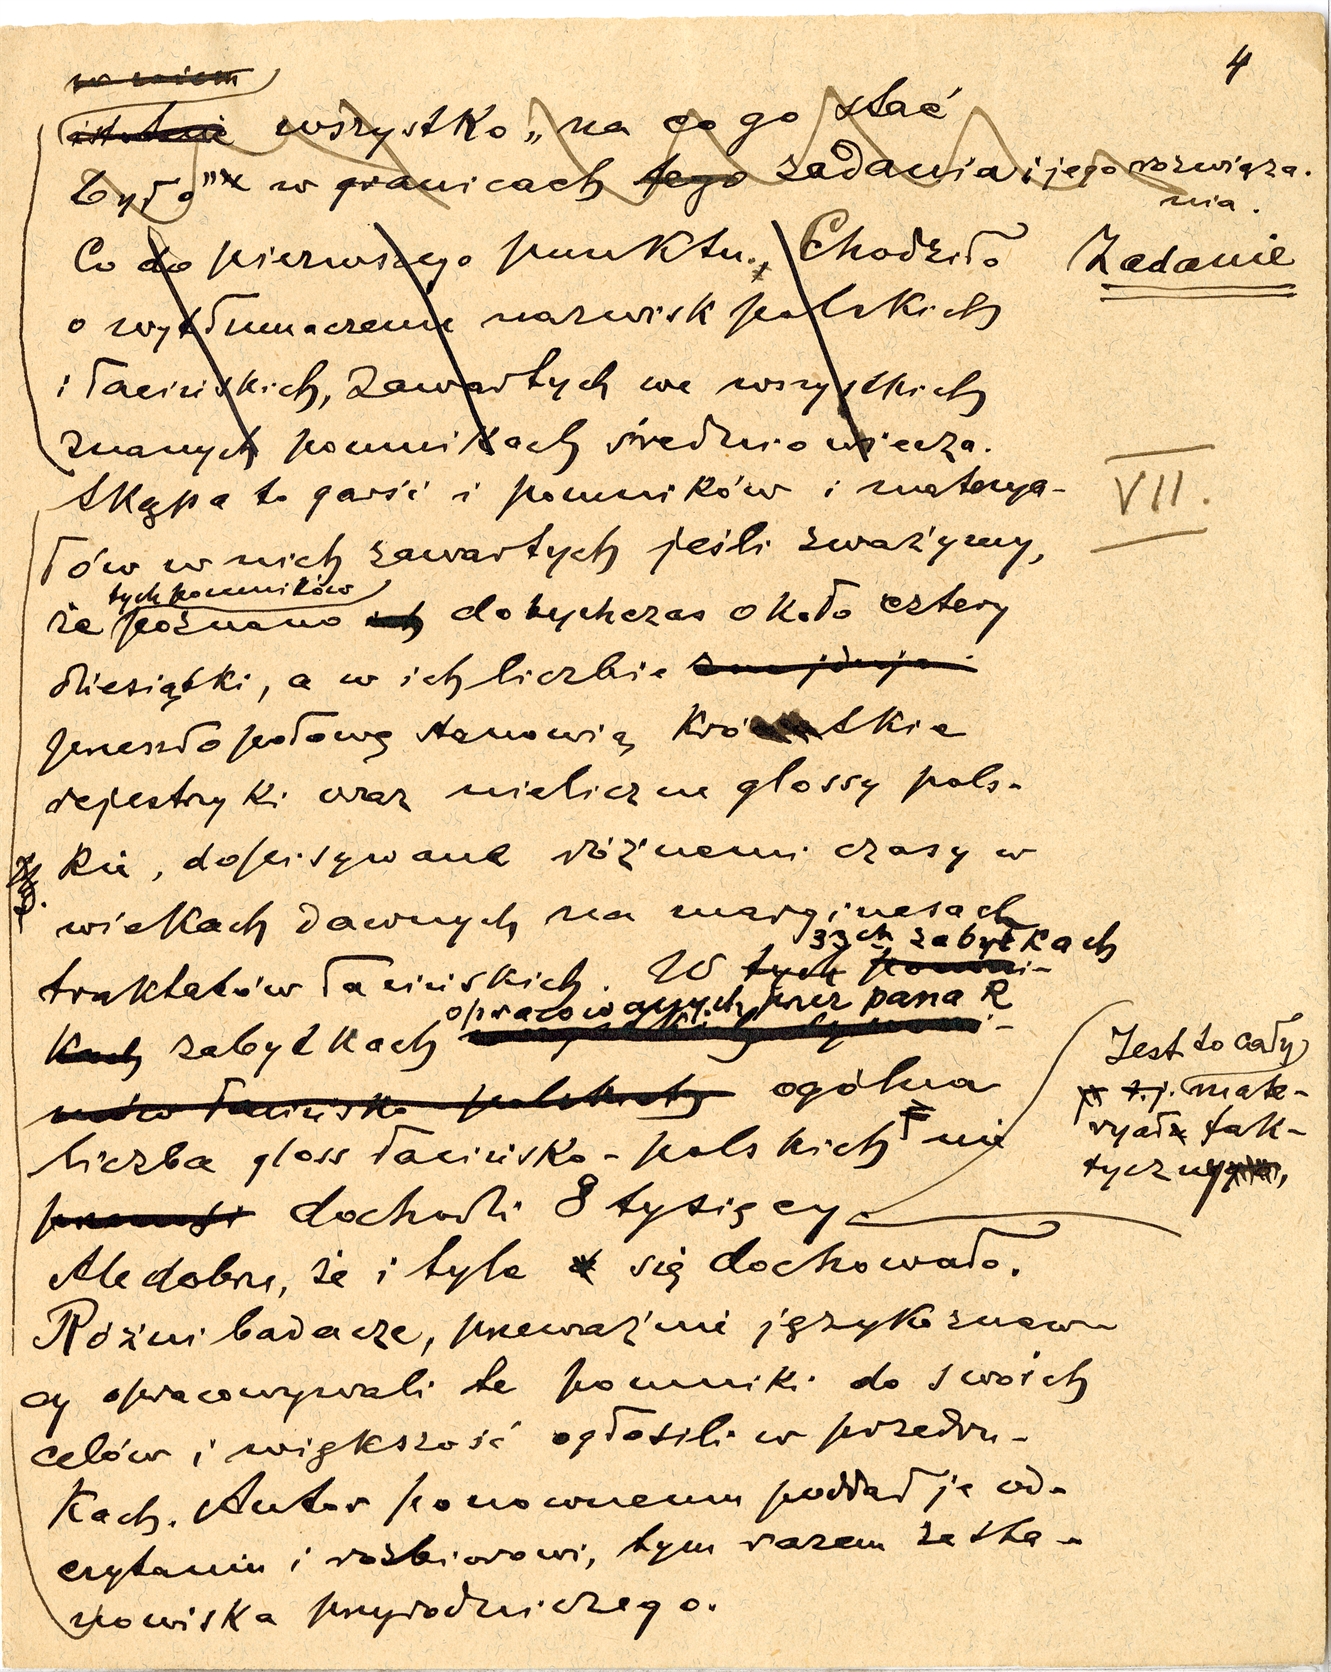 4
wszystko „na co go stać
było" w granicach tego zadania i jego rozwiąza-
nia.
Co do pierwszego punktu. Chodziło
Zadanie
o wytłumaczenie nazwisk polskich
i łacińskich, zawartych we wszystkich
znanych pomnikach średniowiecza.
Skąpa to garść i pomników i materya-
VII.
łów w nich zawartych jeśli zważymy,
tych pomników
że poznano ich dotychczas około cztery
dziesiątki, a w ich liczbie znajduje
przeszło połowę stanowią krótkie
rejestryki oraz nieliczne glossy pols-
kie, dopisywane różnemi czasy w
wiekach dawnych na marginesach
33ch zabytkach
traktatów łacińskich. W tych pomni-
opracowanych przez pana R
kach zabytkach
ogólna
liczba gloss łacińsko-polskich nie
dochodzi 8 tysięcy
Jest to cały
t.j. mate-
ryał fak-
tyczny
Ale dobrze, że i tyle się dochowało.
Różni badacze, przeważnie językoznaw-
cy opracowywali te pomniki do swoich
celów i większość ogłosili w przedru-
kach. Autor ponownemu poddał je od-
czytaniu i rozbiorowi, tym razem ze sta-
nowiska przyrodniczego.